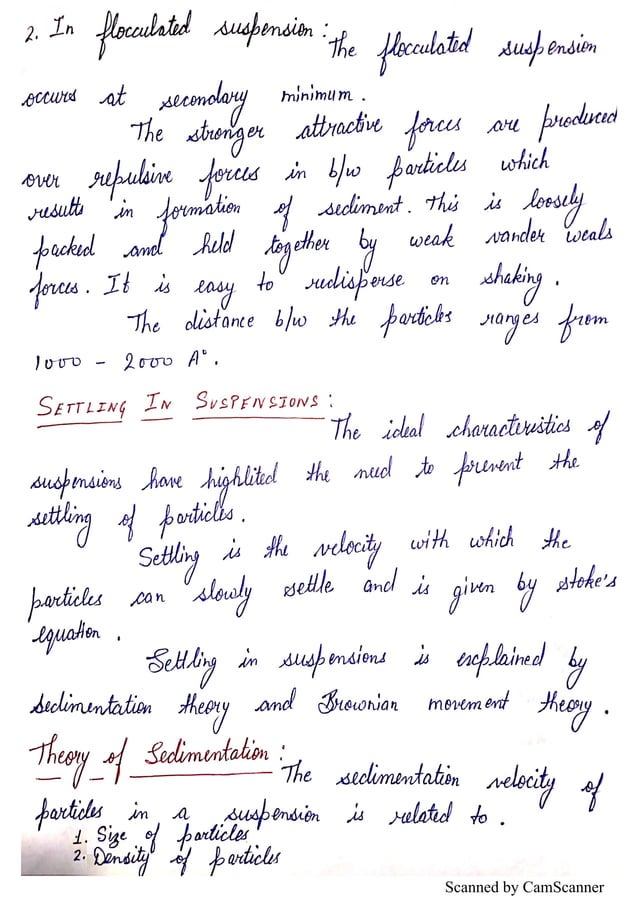 2. In flocculated suspension : The flocculated suspension
occurs at secondary minimum.
The stronger attractive forces are produced
over repulsive forces in b/w particles which
results in formation of sediment. This is loosely
packed and held together by weak vander weals
forces. It is easy to redisperse on shaking.
The distance b/w the particles ranges from
1000 - 2000 A°.
SETTLING IN SUSPENSIONS :
The ideal characteristics of
suspensions have highlited the need to prevent the
settling of particles.
Settling is the velocity with which the
particles can slowly settle and is given by stoke's
equation.
Settling in suspensions is explained by
sedimentation theory and Brownian movement theory.
Theory of Sedimentation :
The sedimentation velocity of
particles in a suspension is related to.
1. Size of particles
2. Density of particles
Scanned by CamScanner